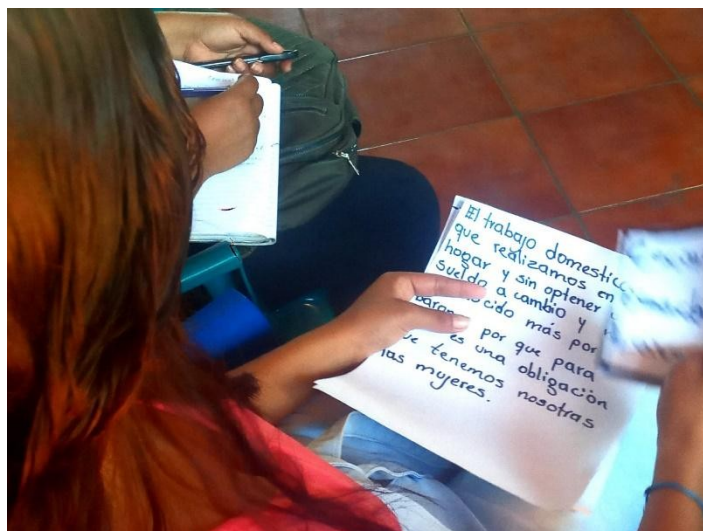 El trabajo domestico
que realizamos en
hogar y sin optener
sueldo a cambio y
más por
por que para
es una obligación
que tenemos nosotras
las mujeres.